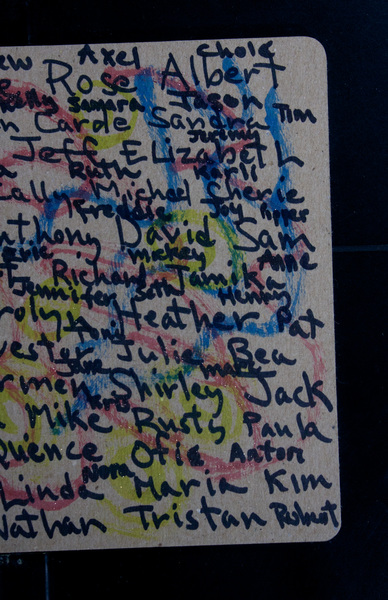 ew Axel Chole
e Rose Albert
Kelly Samara Jason Tim
n Carde Sandra
Jeremy
Jeff Elizabeth
a Ruth Karli
Call Michel Cherie
Freddie Joy
nthony David Sam
Eric Mickey Anne
Richard Tamika
Jennifer Seth Henry
roly Heather Pat
April
vester Julie Bea
Jane Mark
rmen Shirley Jack
Kris
Mike Rusty Paula
quence Otis Anton
Nora
Linda Maria Kim
Nathan Tristan Robert